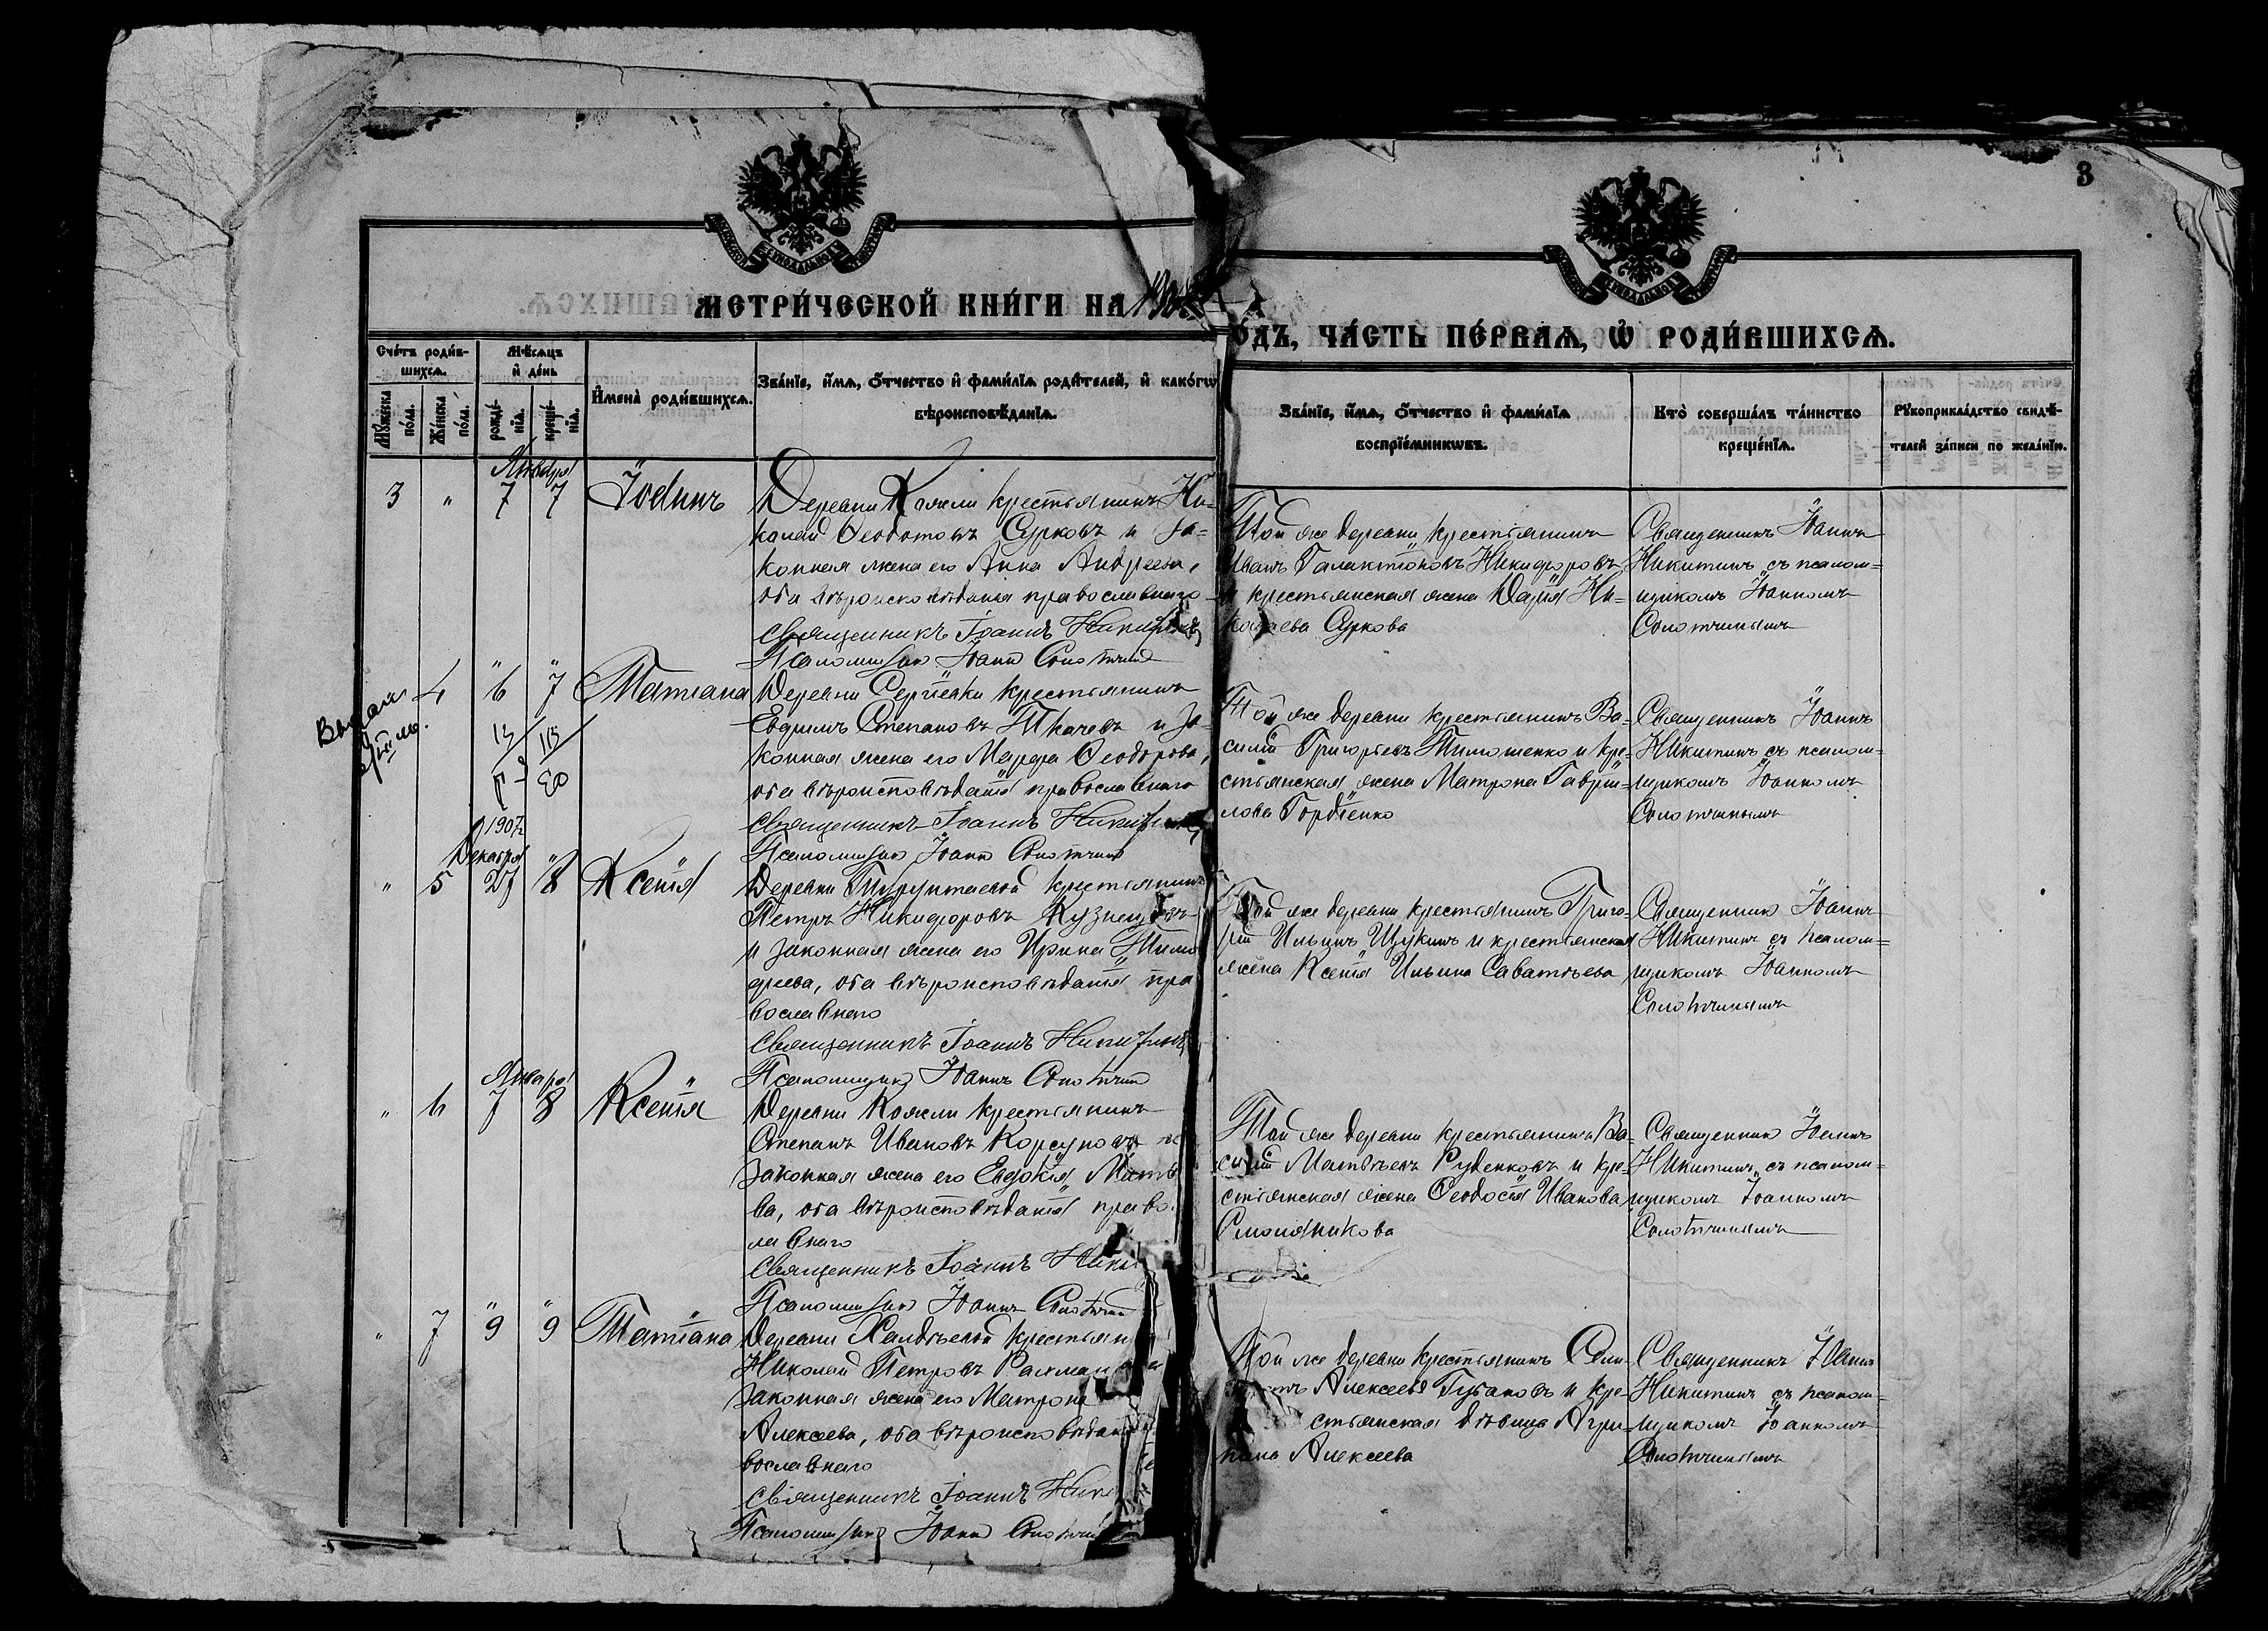 3
МЕТРИ́ЧЕСКОЙ КНИ́ГИ НА 1908
ОДЪ, ЧА́СТЬ ПЕ́РВАЯ, Ѡ҆ РОДИ́ВШИХСЯ.
Сче́тъ роди́в-
шихся.
Мѣ́сяцъ
и҆ де́нь
Мꙋ́жеска по́ла.
Же́нска по́ла.
рожде́-
нїя.
креще́-
нїя.
И҆мена̀ роди́вшихся.
Зва́нїе, и҆́мя, ѻ҆́тчество и҆ фами́лїя роди́телей, и҆ како́гѡ
вѣроисповѣ́данїя.
Зва́нїе, и҆́мя, ѻ҆́тчество и҆ фами́лїя
воспрїе́мникѡвъ.
Кто̀ соверша́лъ та́инство
креще́нїя.
Рꙋкоприкла́дство свидѣ́-
телей за́писи по жела́нїю.
Января
3 " 7 7 Іоаннъ
Деревни Кояли крестьянинъ Ни-
колай Ѳеодотовъ Сурковъ и за-
конная жена его Анна Андреева,
оба вѣроисповѣданія православнаго
Священникъ Іоаннъ Никитинъ
Псаломщикъ Іоаннъ Солотчинъ
Той же деревни крестьянинъ
Иванъ Галактіоновъ Никифоровъ
и крестьянская жена Дарія Ни-
колаева Суркова
Священникъ Іоаннъ
Никитинъ съ псалом-
щикомъ Іоанномъ
Солотчинымъ
4 " 6 " 7 Татіана
Деревни Сергіевки крестьянинъ
Евфимъ Степановъ Ткачевъ и за-
конная жена его Марфа Ѳеодорова,
оба вѣроисповѣданія православнаго
Священникъ Іоаннъ Никитинъ
Псаломщикъ Іоаннъ Солотчинъ
Той же деревни крестьянинъ Ва-
силій Григорьевъ Тимошенко и кре-
стьянская жена Матрона Гавріи-
лова Гордіенко
Священникъ Іоаннъ
Никитинъ съ псалом-
щикомъ Іоанномъ
Солотчинымъ
1907 г.
Декабря
" 5 27 8 Ксенія
Деревни крестьянинъ
Петръ Никифоровъ Кузнецовъ
и законная жена его Ирина Тимо
феева, оба вѣроисповѣданія пра
вославнаго
Священникъ Іоаннъ Никитинъ
Псаломщикъ Іоаннъ Солотчинъ
Той же деревни крестьянинъ Григо-
рій Ильинъ Щукинъ и крестьянская
жена Ксенія Ильина Саватѣева
Священникъ Іоаннъ
Никитинъ съ псалом-
щикомъ Іоанномъ
Солотчинымъ
Января
" 6 7 8 Ксенія
Деревни Кояли крестьянинъ
Степанъ Ивановъ Корсуновъ и
законная жена его Евдокія Матвѣ
ва, оба вѣроисповѣданія право
лавнаго
Священникъ Іоаннъ Ники
Псаломщикъ Іоаннъ Солотчин
Той же деревни крестьянинъ Ва-
силій Матвѣевъ Руденковъ и кре-
стьянская жена Ѳеодосія Иванова
Смольникова
Священникъ Іоаннъ
Никитинъ съ псалом-
щикомъ Іоанномъ
Солотчинымъ
" 7 " 9 " 9 Татіана
Деревни крестьян
Николай Петровъ Рахман
законная жена его Матрона
Алексеева, оба вѣроисповѣдан
вославнаго
Священникъ Іоаннъ Ники
Псаломщикъ Іоаннъ Солотчи
Той же деревни крестьянинъ
Алексеевъ Губановъ и кре-
стьянская дѣвица Агри-
пина Алексеева
Священникъ Іоаннъ
Никитинъ съ псалом-
щикомъ Іоанномъ
Солотчинымъ